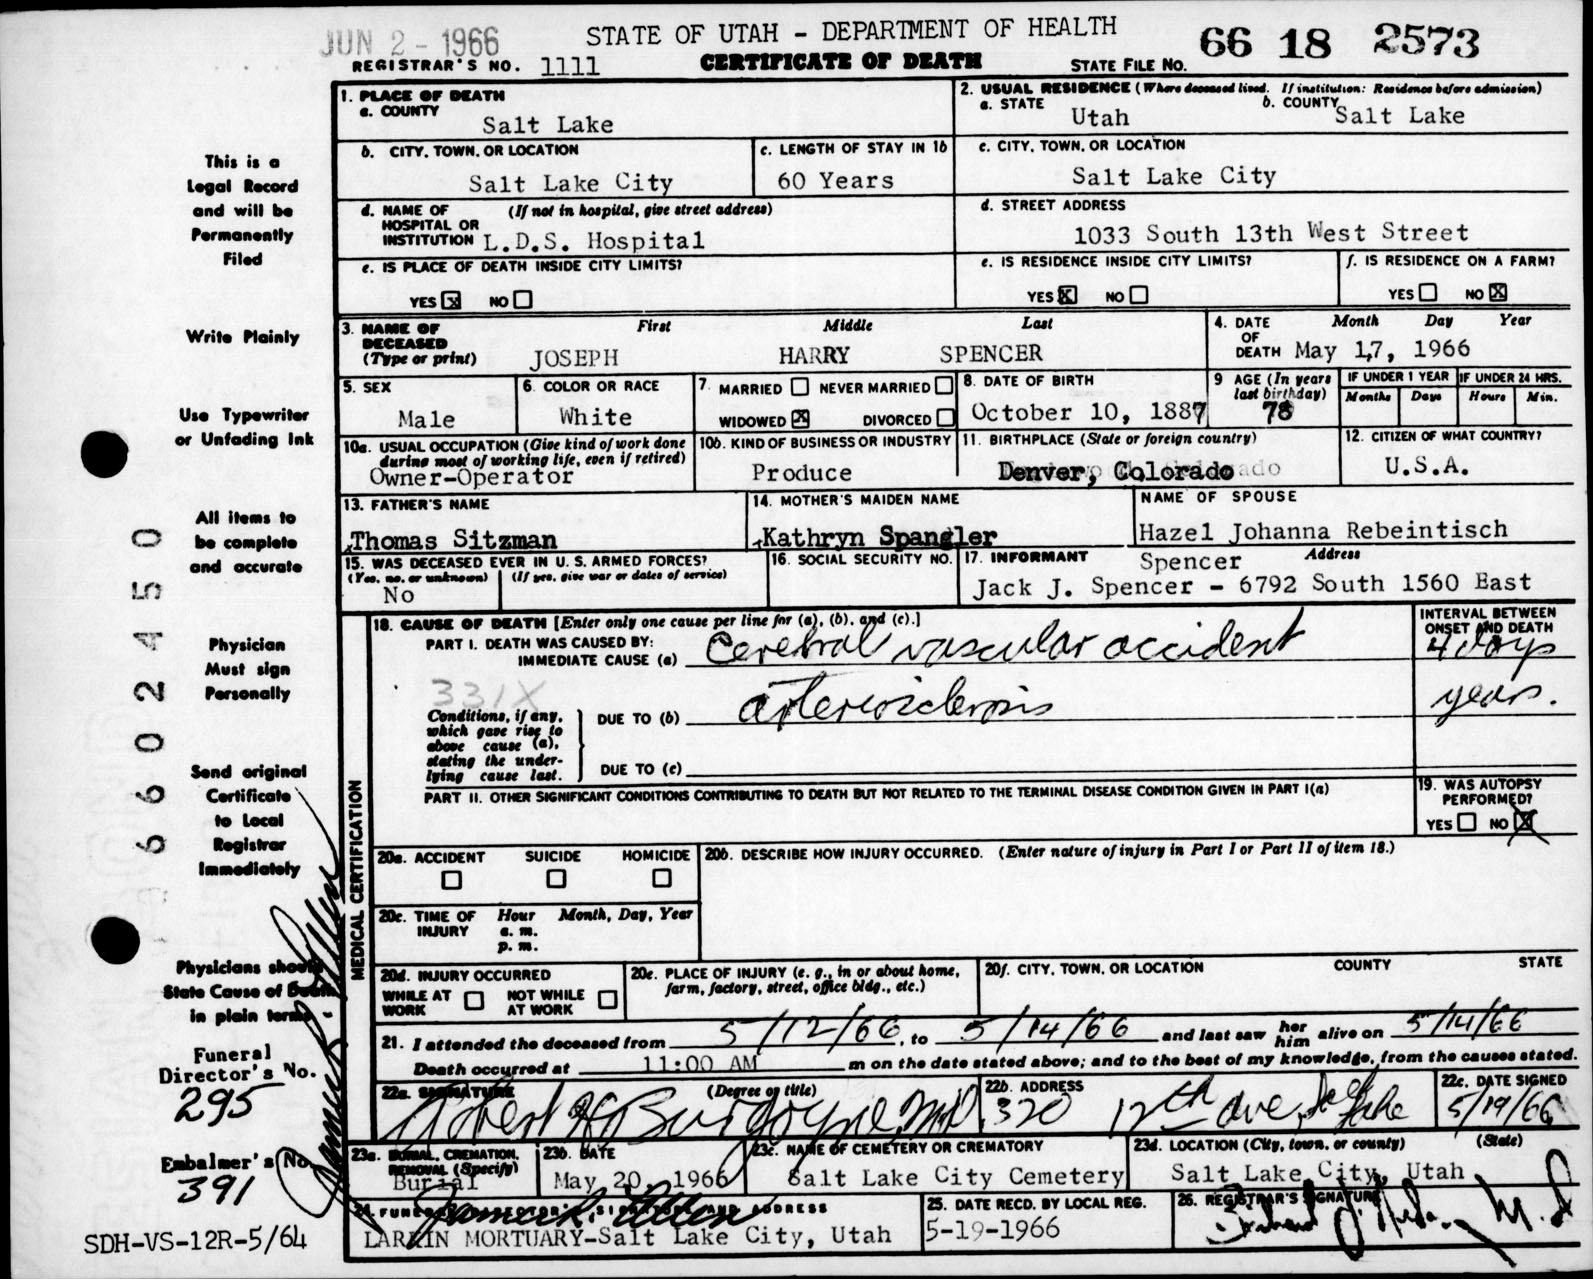 JUN 2 - 1966
STATE OF UTAH - DEPARTMENT OF HEALTH
66 18 2573
REGISTRAR'S NO. 1111
CERTIFICATE OF DEATH
STATE FILE NO.
1. PLACE OF DEATH
a. COUNTY
Salt Lake
2. USUAL RESIDENCE (Where deceased lived. If institution: Residence before admission)
a. STATE Utah
b. COUNTY Salt Lake
b. CITY, TOWN, OR LOCATION
Salt Lake City
c. LENGTH OF STAY IN 1b
60 Years
c. CITY, TOWN, OR LOCATION
Salt Lake City
d. NAME OF HOSPITAL OR INSTITUTION (If not in hospital, give street address)
L.D.S. Hospital
d. STREET ADDRESS
1033 South 13th West Street
e. IS PLACE OF DEATH INSIDE CITY LIMITS?
YES X NO
e. IS RESIDENCE INSIDE CITY LIMITS?
YES X NO
f. IS RESIDENCE ON A FARM?
YES NO X
3. NAME OF DECEASED (Type or print)
First Middle Last
JOSEPH HARRY SPENCER
4. DATE OF DEATH
Month Day Year
May 17, 1966
5. SEX
Male
6. COLOR OR RACE
White
7. MARRIED NEVER MARRIED
WIDOWED X DIVORCED
8. DATE OF BIRTH
October 10, 1887
9 AGE (In years last birthday)
78
IF UNDER 1 YEAR
Months Days
IF UNDER 24 HRS.
Hours Min.
10a. USUAL OCCUPATION (Give kind of work done during most of working life, even if retired)
Owner-Operator
10b. KIND OF BUSINESS OR INDUSTRY
Produce
11. BIRTHPLACE (State or foreign country)
Denver, Colorado
12. CITIZEN OF WHAT COUNTRY?
U.S.A.
13. FATHER'S NAME
Thomas Sitzman
14. MOTHER'S MAIDEN NAME
Kathryn Spangler
NAME OF SPOUSE
Hazel Johanna Rebeintisch
Spencer
15. WAS DECEASED EVER IN U. S. ARMED FORCES?
(Yes, no, or unknown) (If yes, give war or dates of service)
No
16. SOCIAL SECURITY NO.
17. INFORMANT Address
Jack J. Spencer - 6792 South 1560 East
18. CAUSE OF DEATH [Enter only one cause per line for (a), (b), and (c).]
INTERVAL BETWEEN ONSET AND DEATH
PART I. DEATH WAS CAUSED BY:
IMMEDIATE CAUSE (a) Cerebral vascular accident
4 days
331X
Conditions, if any, which gave rise to above cause (a), stating the underlying cause last.
DUE TO (b) arteriosclerosis
years.
DUE TO (c)
PART II. OTHER SIGNIFICANT CONDITIONS CONTRIBUTING TO DEATH BUT NOT RELATED TO THE TERMINAL DISEASE CONDITION GIVEN IN PART I(a)
19. WAS AUTOPSY PERFORMED?
YES NO X
MEDICAL CERTIFICATION
20a. ACCIDENT SUICIDE HOMICIDE
20b. DESCRIBE HOW INJURY OCCURRED. (Enter nature of injury in Part I or Part II of item 18.)
20c. TIME OF INJURY
Hour Month, Day, Year
a. m.
p. m.
20d. INJURY OCCURRED
WHILE AT WORK NOT WHILE AT WORK
20e. PLACE OF INJURY (e. g., in or about home, farm, factory, street, office bldg., etc.)
20f. CITY, TOWN, OR LOCATION COUNTY STATE
21. I attended the deceased from 5/12/66, to 5/14/66 and last saw her him alive on 5/14/66
Death occurred at 11:00 AM m on the date stated above; and to the best of my knowledge, from the causes stated.
22a. SIGNATURE (Degree or title)
Burgoyne, M.D.
22b. ADDRESS
320 12th ave, Salt Lake
22c. DATE SIGNED
5/19/66
23a. BURIAL, CREMATION, REMOVAL (Specify)
Burial
23b. DATE
May 20, 1966
23c. NAME OF CEMETERY OR CREMATORY
Salt Lake City Cemetery
23d. LOCATION (City, town, or county) (State)
Salt Lake City, Utah
24. FUNERAL DIRECTOR'S SIGNATURE AND ADDRESS
LARKIN MORTUARY-Salt Lake City, Utah
25. DATE RECD. BY LOCAL REG.
5-19-1966
26. REGISTRAR'S SIGNATURE
M.D
This is a
Legal Record
and will be
Permanently
Filed
Write Plainly
Use Typewriter
or Unfading Ink
All items to
be complete
and accurate
Physician
Must sign
Personally
Send original
Certificate
to Local
Registrar
Immediately
Physicians should
State Cause of Death
in plain terms.
Funeral
Director's No.
295
Embalmer's No.
391
SDH-VS-12R-5/64
6602450